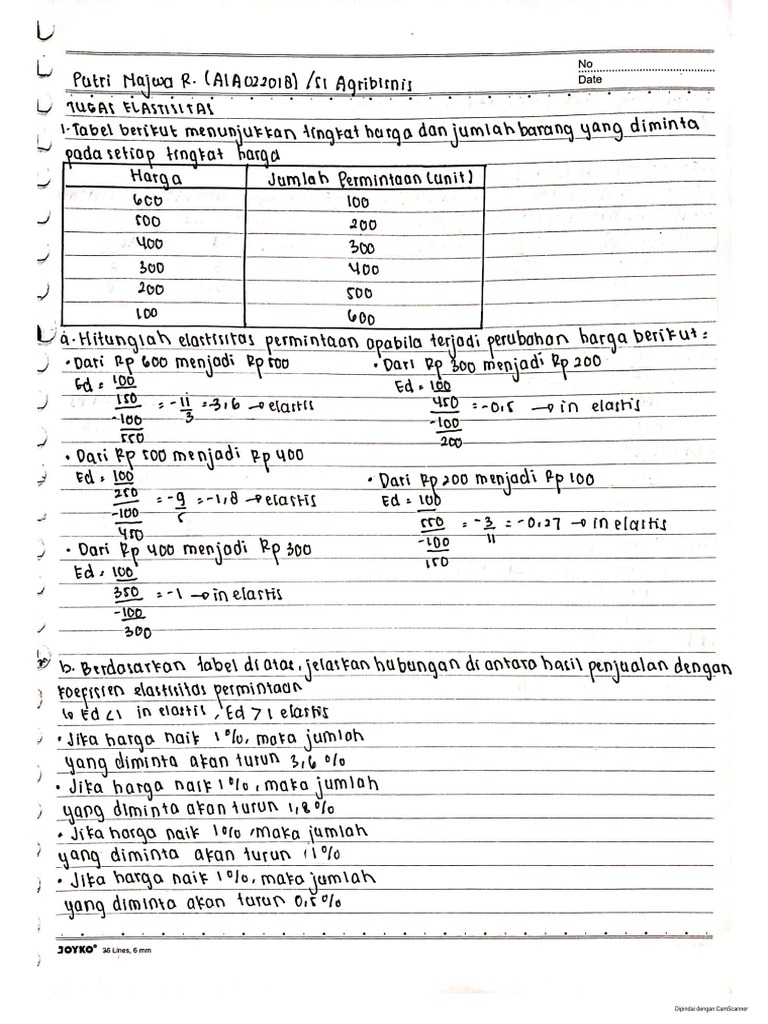 No
Date
Putri Najwa R. (A1A022018) / S1 Agribisnis
TUGAS ELASTISITAS
1. Tabel berikut menunjukkan tingkat harga dan jumlah barang yang diminta
pada setiap tingkat harga
Harga Jumlah Permintaan (unit)
600 100
500 200
400 300
300 400
200 500
100 600
a. Hitunglah elastisitas permintaan apabila terjadi perubahan harga berikut :
• Dari Rp 600 menjadi Rp 500
Ed = 100
150 = -11 = -3,6 → elastis
-100 3
550
• Dari Rp 500 menjadi Rp 400
Ed = 100
250 = -9 = -1,8 → elastis
-100 5
450
• Dari Rp 400 menjadi Rp 300
Ed = 100
350 = -1 → in elastis
-100
300
• Dari Rp 300 menjadi Rp 200
Ed = 100
450 = -0,5 → in elastis
-100
200
• Dari Rp 200 menjadi Rp 100
Ed = 100
550 = -3 = -0,27 → in elastis
-100 11
150
b. Berdasarkan tabel di atas, jelaskan hubungan di antara hasil penjualan dengan
koefisien elastisitas permintaan
↳ Ed < 1 in elastis, Ed > 1 elastis
• Jika harga naik 1%, maka jumlah
yang diminta akan turun 3,6 %
• Jika harga naik 1%, maka jumlah
yang diminta akan turun 1,8%
• Jika harga naik 1%, maka jumlah
yang diminta akan turun 1%
• Jika harga naik 1%, maka jumlah
yang diminta akan turun 0,5%
JOYKO® 36 Lines, 6 mm
Dipindai dengan CamScanner